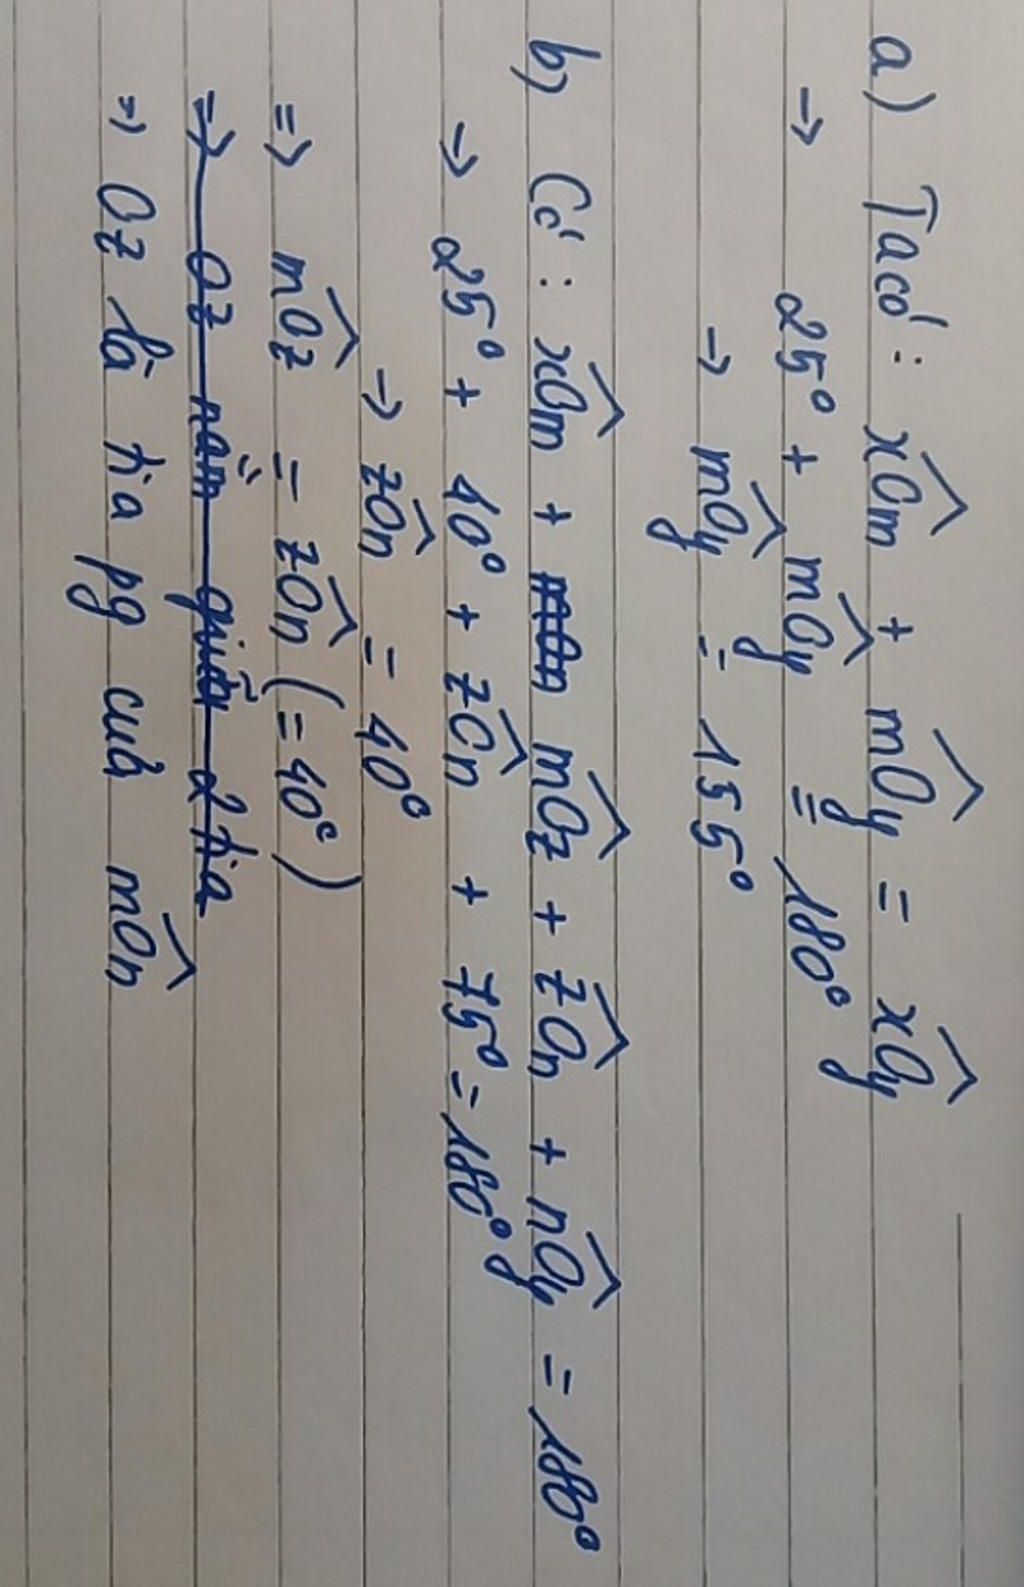 a) Ta có: xOm + mOy = xOy
→ 25° + mOy = 180°
→ mOy = 155°
b) Có: xOm + mOz + zOn + nOy = 180°
→ 25° + 40° + zOn + 75° = 180°
→ zOn = 40°
=> mOz = zOn (= 40°)
=> Oz nằm giữa 2 tia
=> Oz là tia pg của mOn